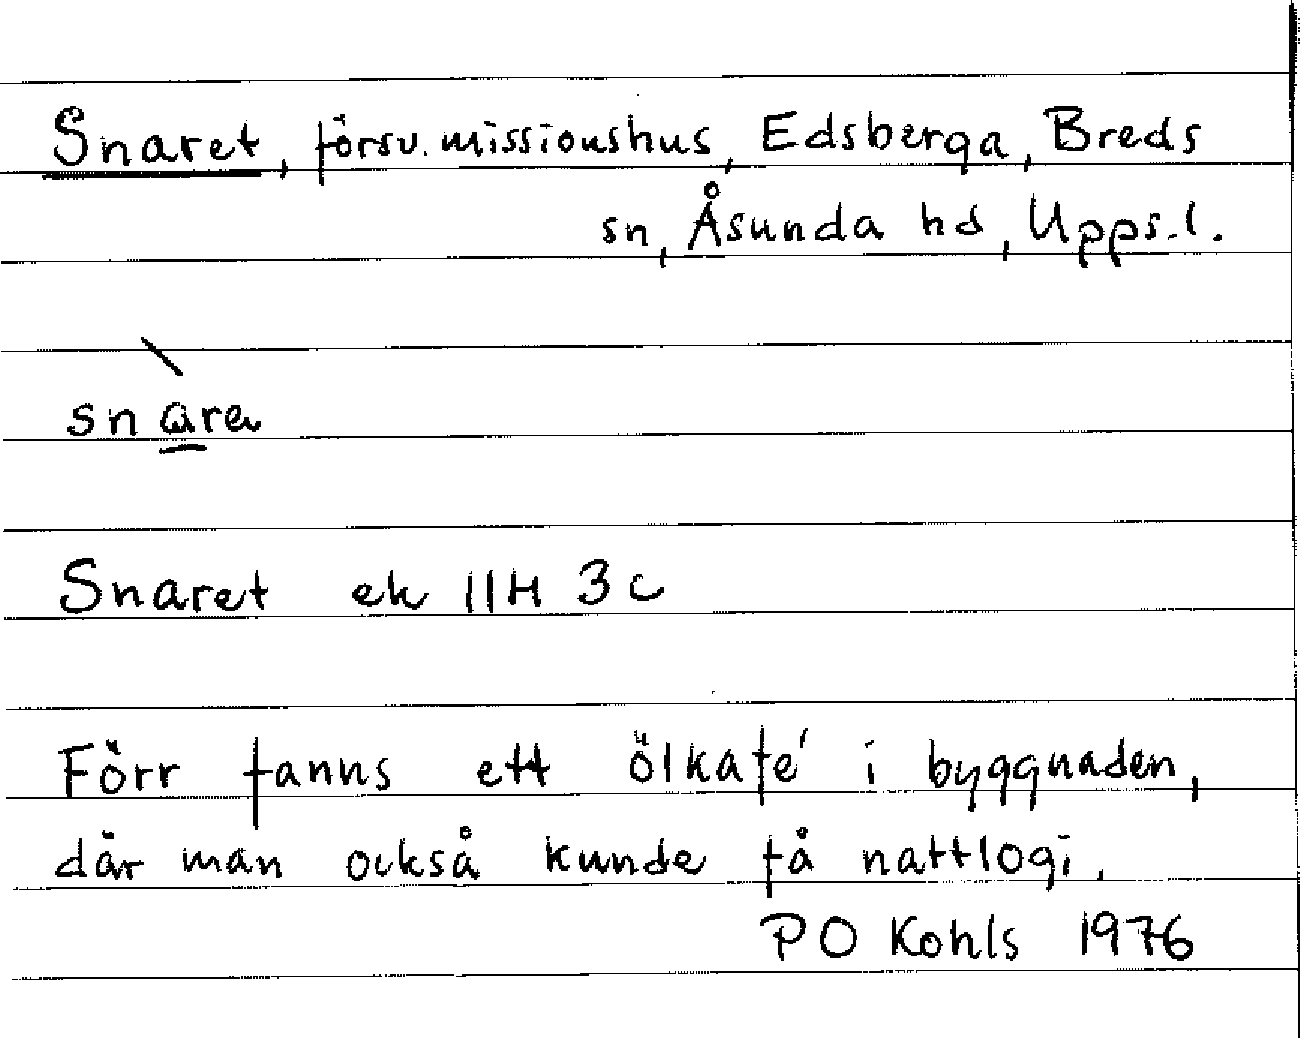 Snaret, försv. missionshus, Edsberga, Breds
sn, Åsunda hd, Upps.l.
snàra
Snaret ek 11H 3c
Förr fanns ett ölkafé i byggnaden,
där man också kunde få nattlogi.
PO Kohls 1976